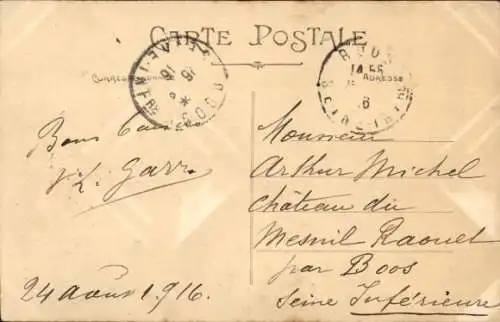 CARTE POSTALE
CORRESPONDANCE
ADRESSE
Bons baisers
L. Garr
24 août 1916.
Monsieur
Arthur Michel
Château du
Mesnil Raouel
par Boos
Seine Inférieure